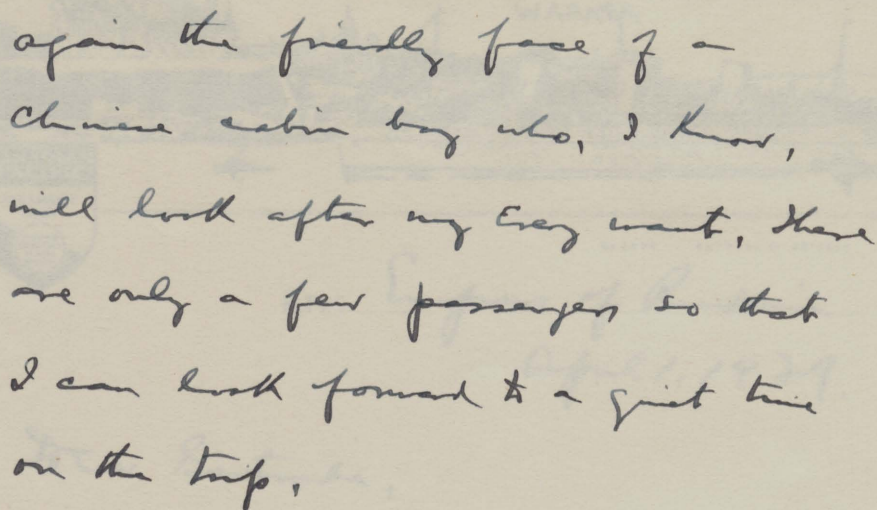 again the friendly face of a
Chinese cabin boy who, I know,
will look after my every want. There
are only a few passengers so that
I can look forward to a quiet time
on the trip.